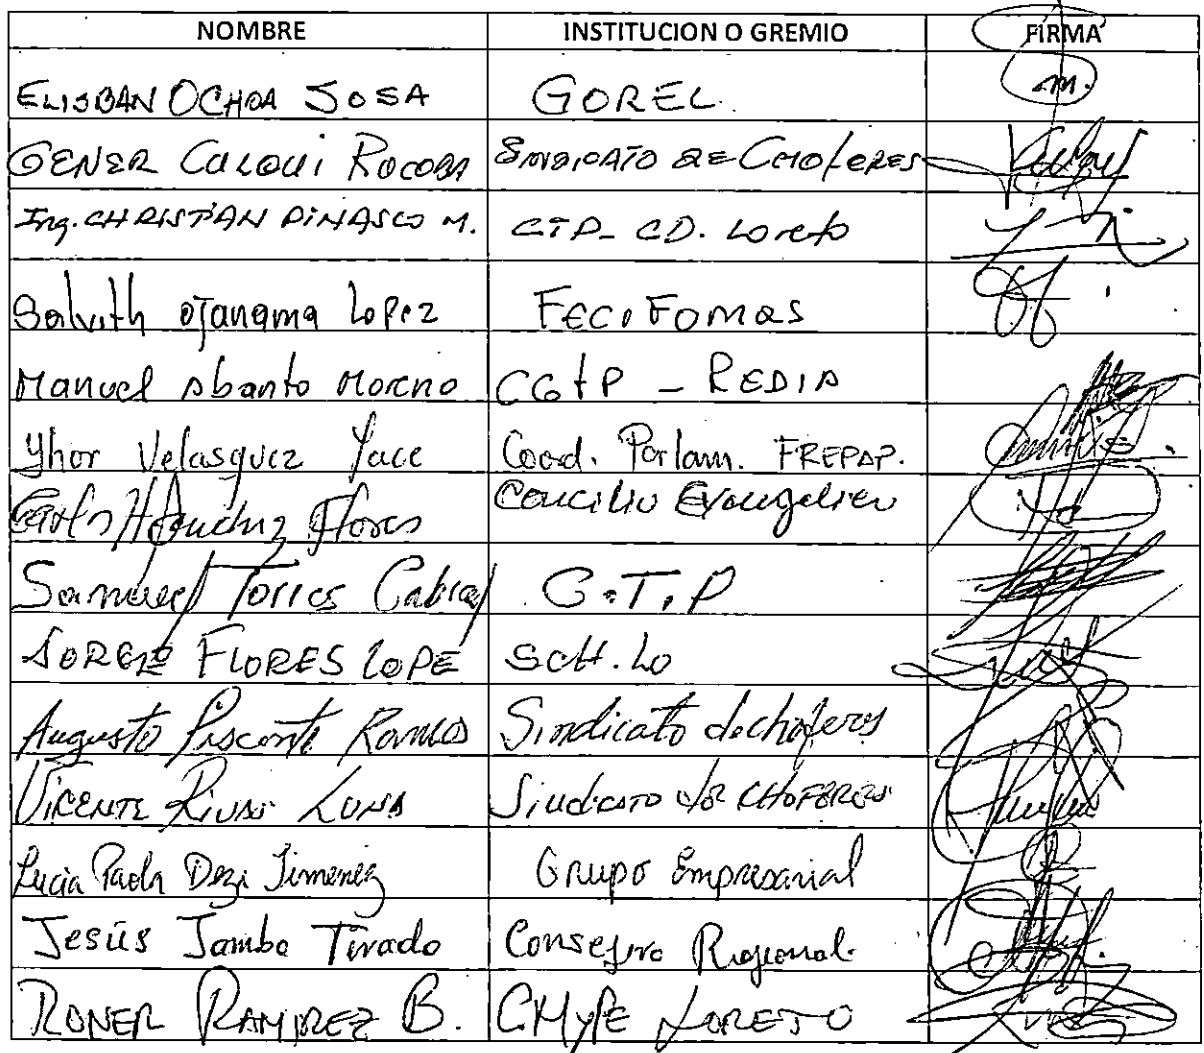 NOMBRE INSTITUCION O GREMIO FIRMA
ELISBAN OCHOA SOSA GOREL.
GENER CULQUI ROCOBA SINDICATO DE CHOFERES
Ing. CHRISTIAN PINASCO M. CIP_ CD. Loreto
Salvith ojanama Lopez FECOFOMAS
Manuel Abanto Moreno CGTP _ REDIA
Yhor Velasquez Yace Coord. Parlam. FREPAP.
Carlos Flores Concilio Evangelico
Samuel Torres Cabral C.T.P
JORGE FLORES LOPE SCH.LO
Augusto Pisconte Ramos Sindicato de choferes
VICENTE LUNA Sindicato de CHOFERES
Lucia Paola Jimenez Grupo Empresarial
Jesús Tirado Consejero Regional
RONER RAMIREZ B. CMYPE LORETO